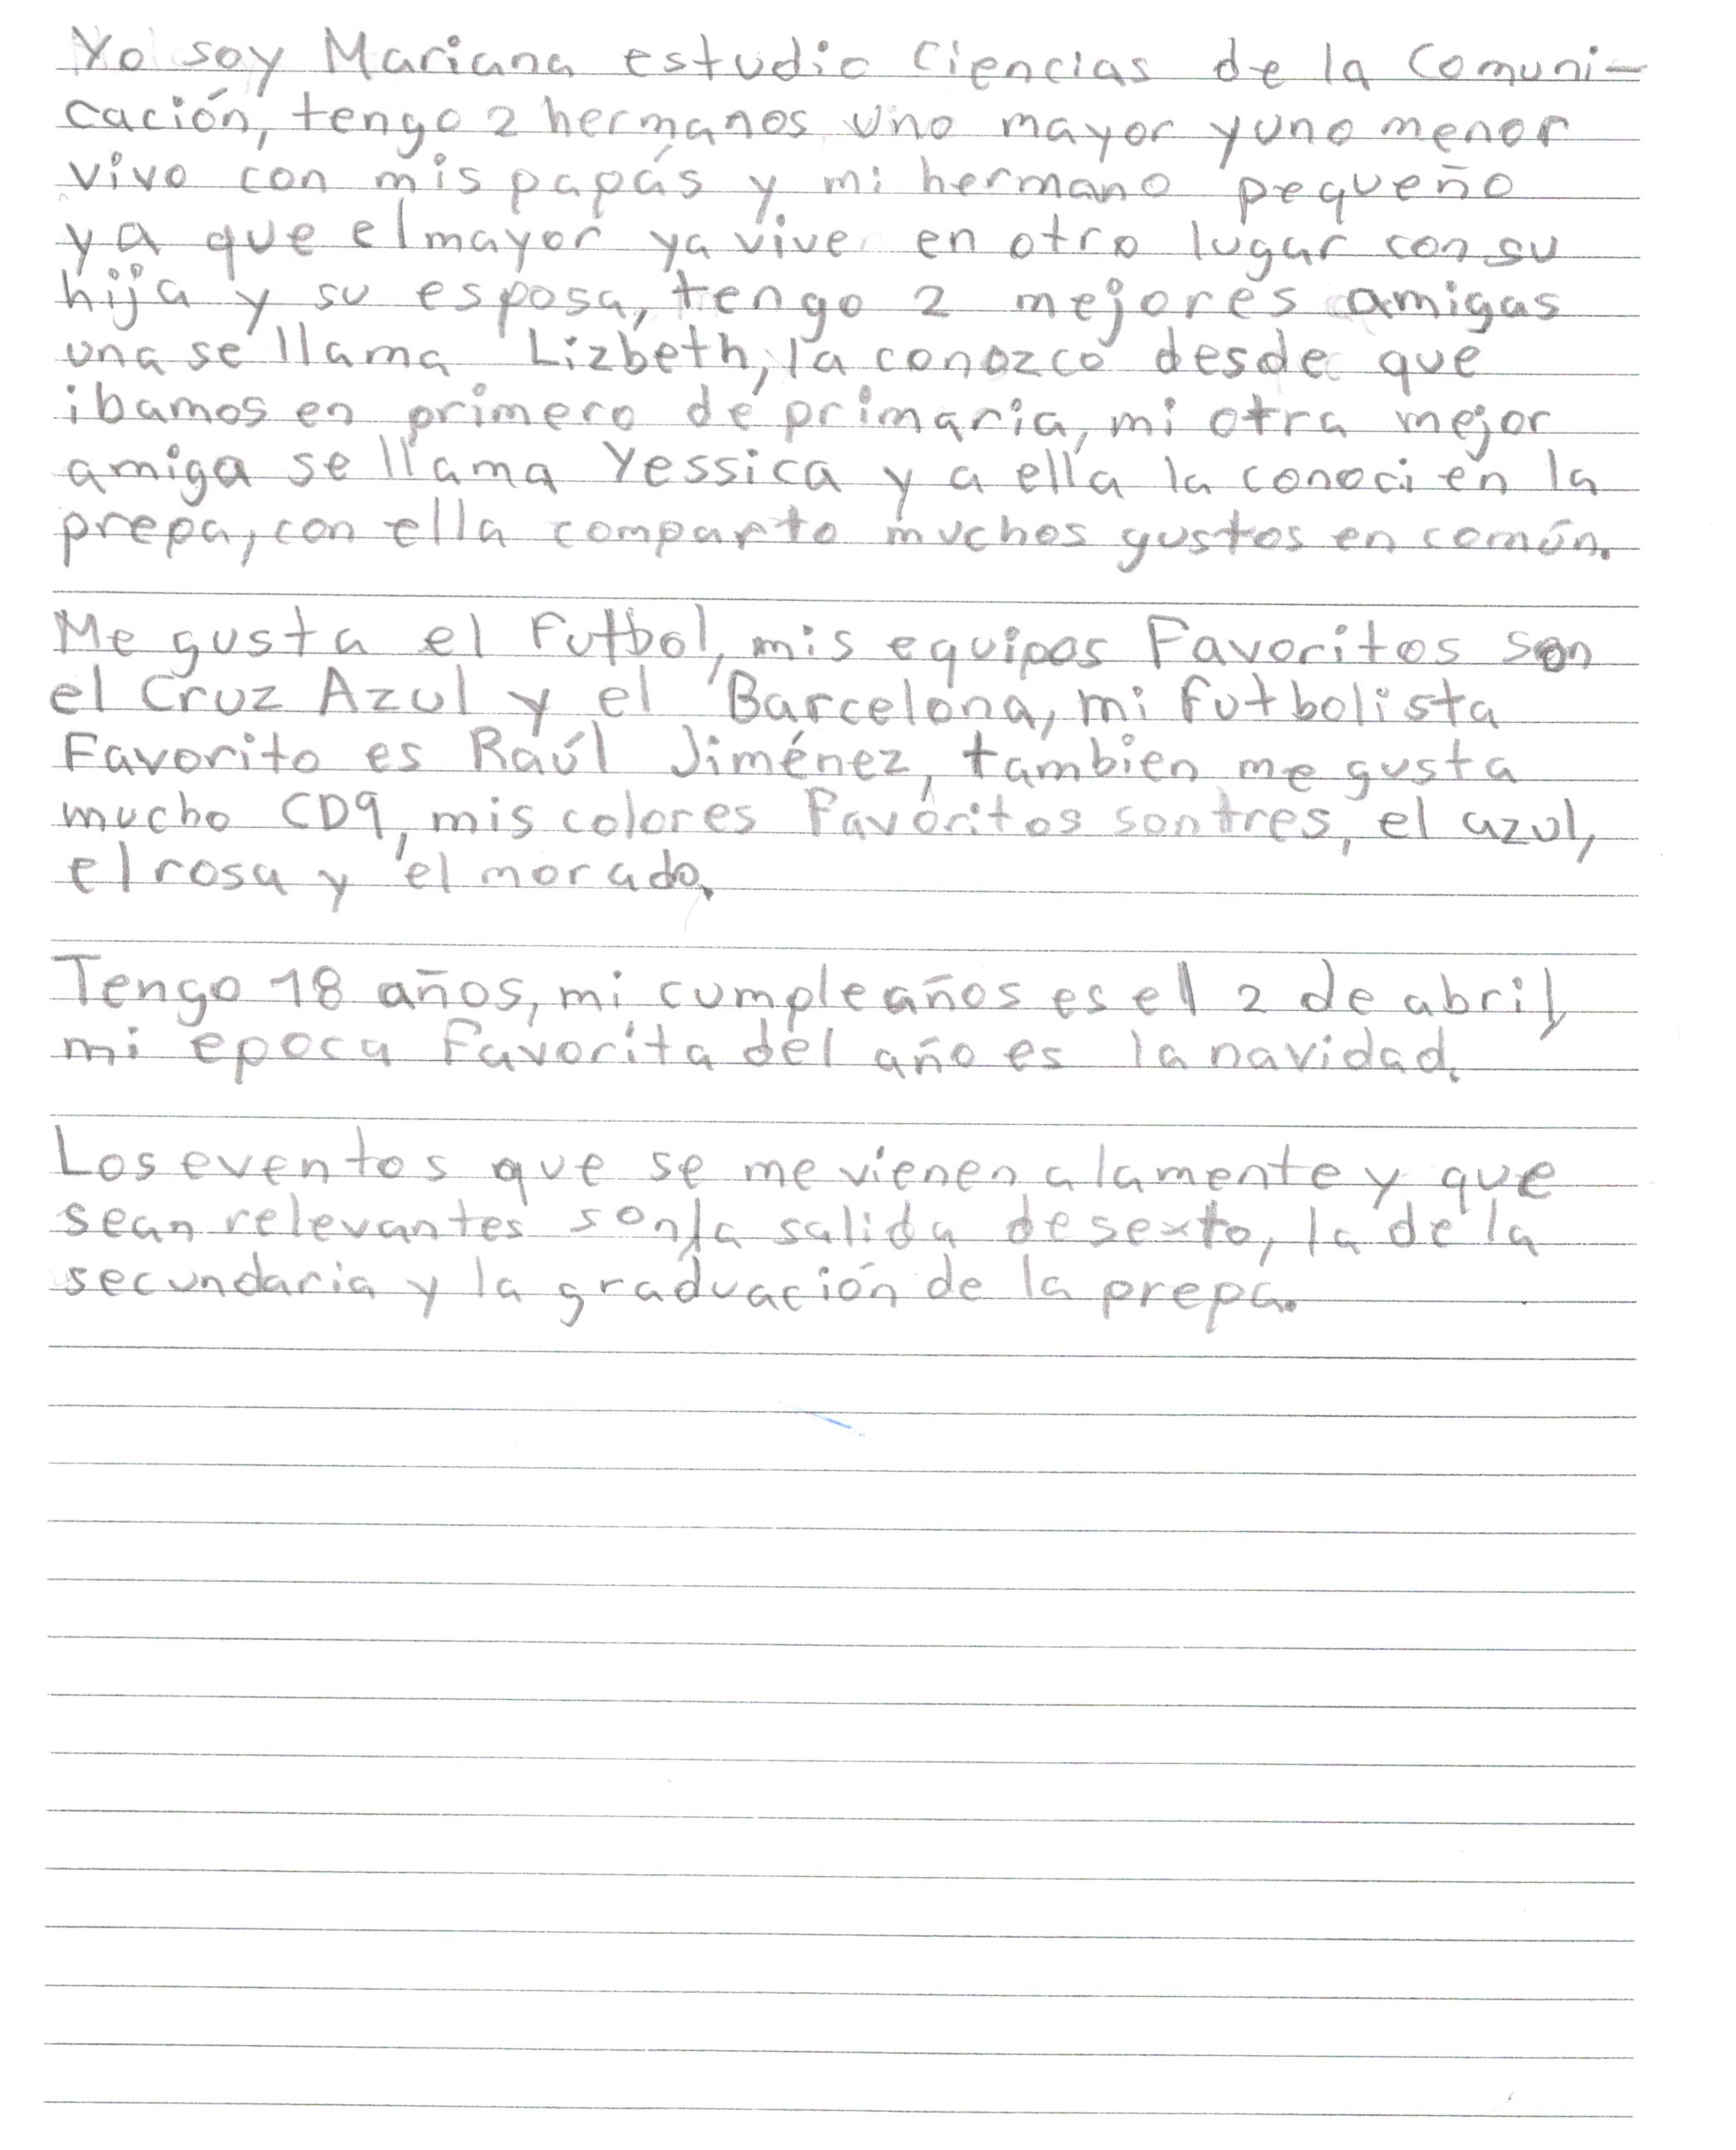 Yo soy Mariana estudio Ciencias de la Comuni-
cación, tengo 2 hermanos uno mayor y uno menor
vivo con mis papás y mi hermano pequeño
ya que el mayor ya vive en otro lugar con su
hija y su esposa, tengo 2 mejores amigas
una se llama Lizbeth, la conozco desde que
ibamos en primero de primaria, mi otra mejor
amiga se llama Yessica y a ella la conoci en la
prepa, con ella comparto muchos gustos en común.
Me gusta el futbol, mis equipos Favoritos son
el Cruz Azul y el Barcelona, mi futbolista
Favorito es Raúl Jiménez, tambien me gusta
mucho CD9, mis colores Favoritos son tres, el azul,
el rosa y el morado.
Tengo 18 años, mi cumpleaños es el 2 de abril,
mi epoca favorita del año es la navidad.
Los eventos que se me vienen a la mente y que
sean relevantes son la salida de sexto, la de la
secundaria y la graduación de la prepa.